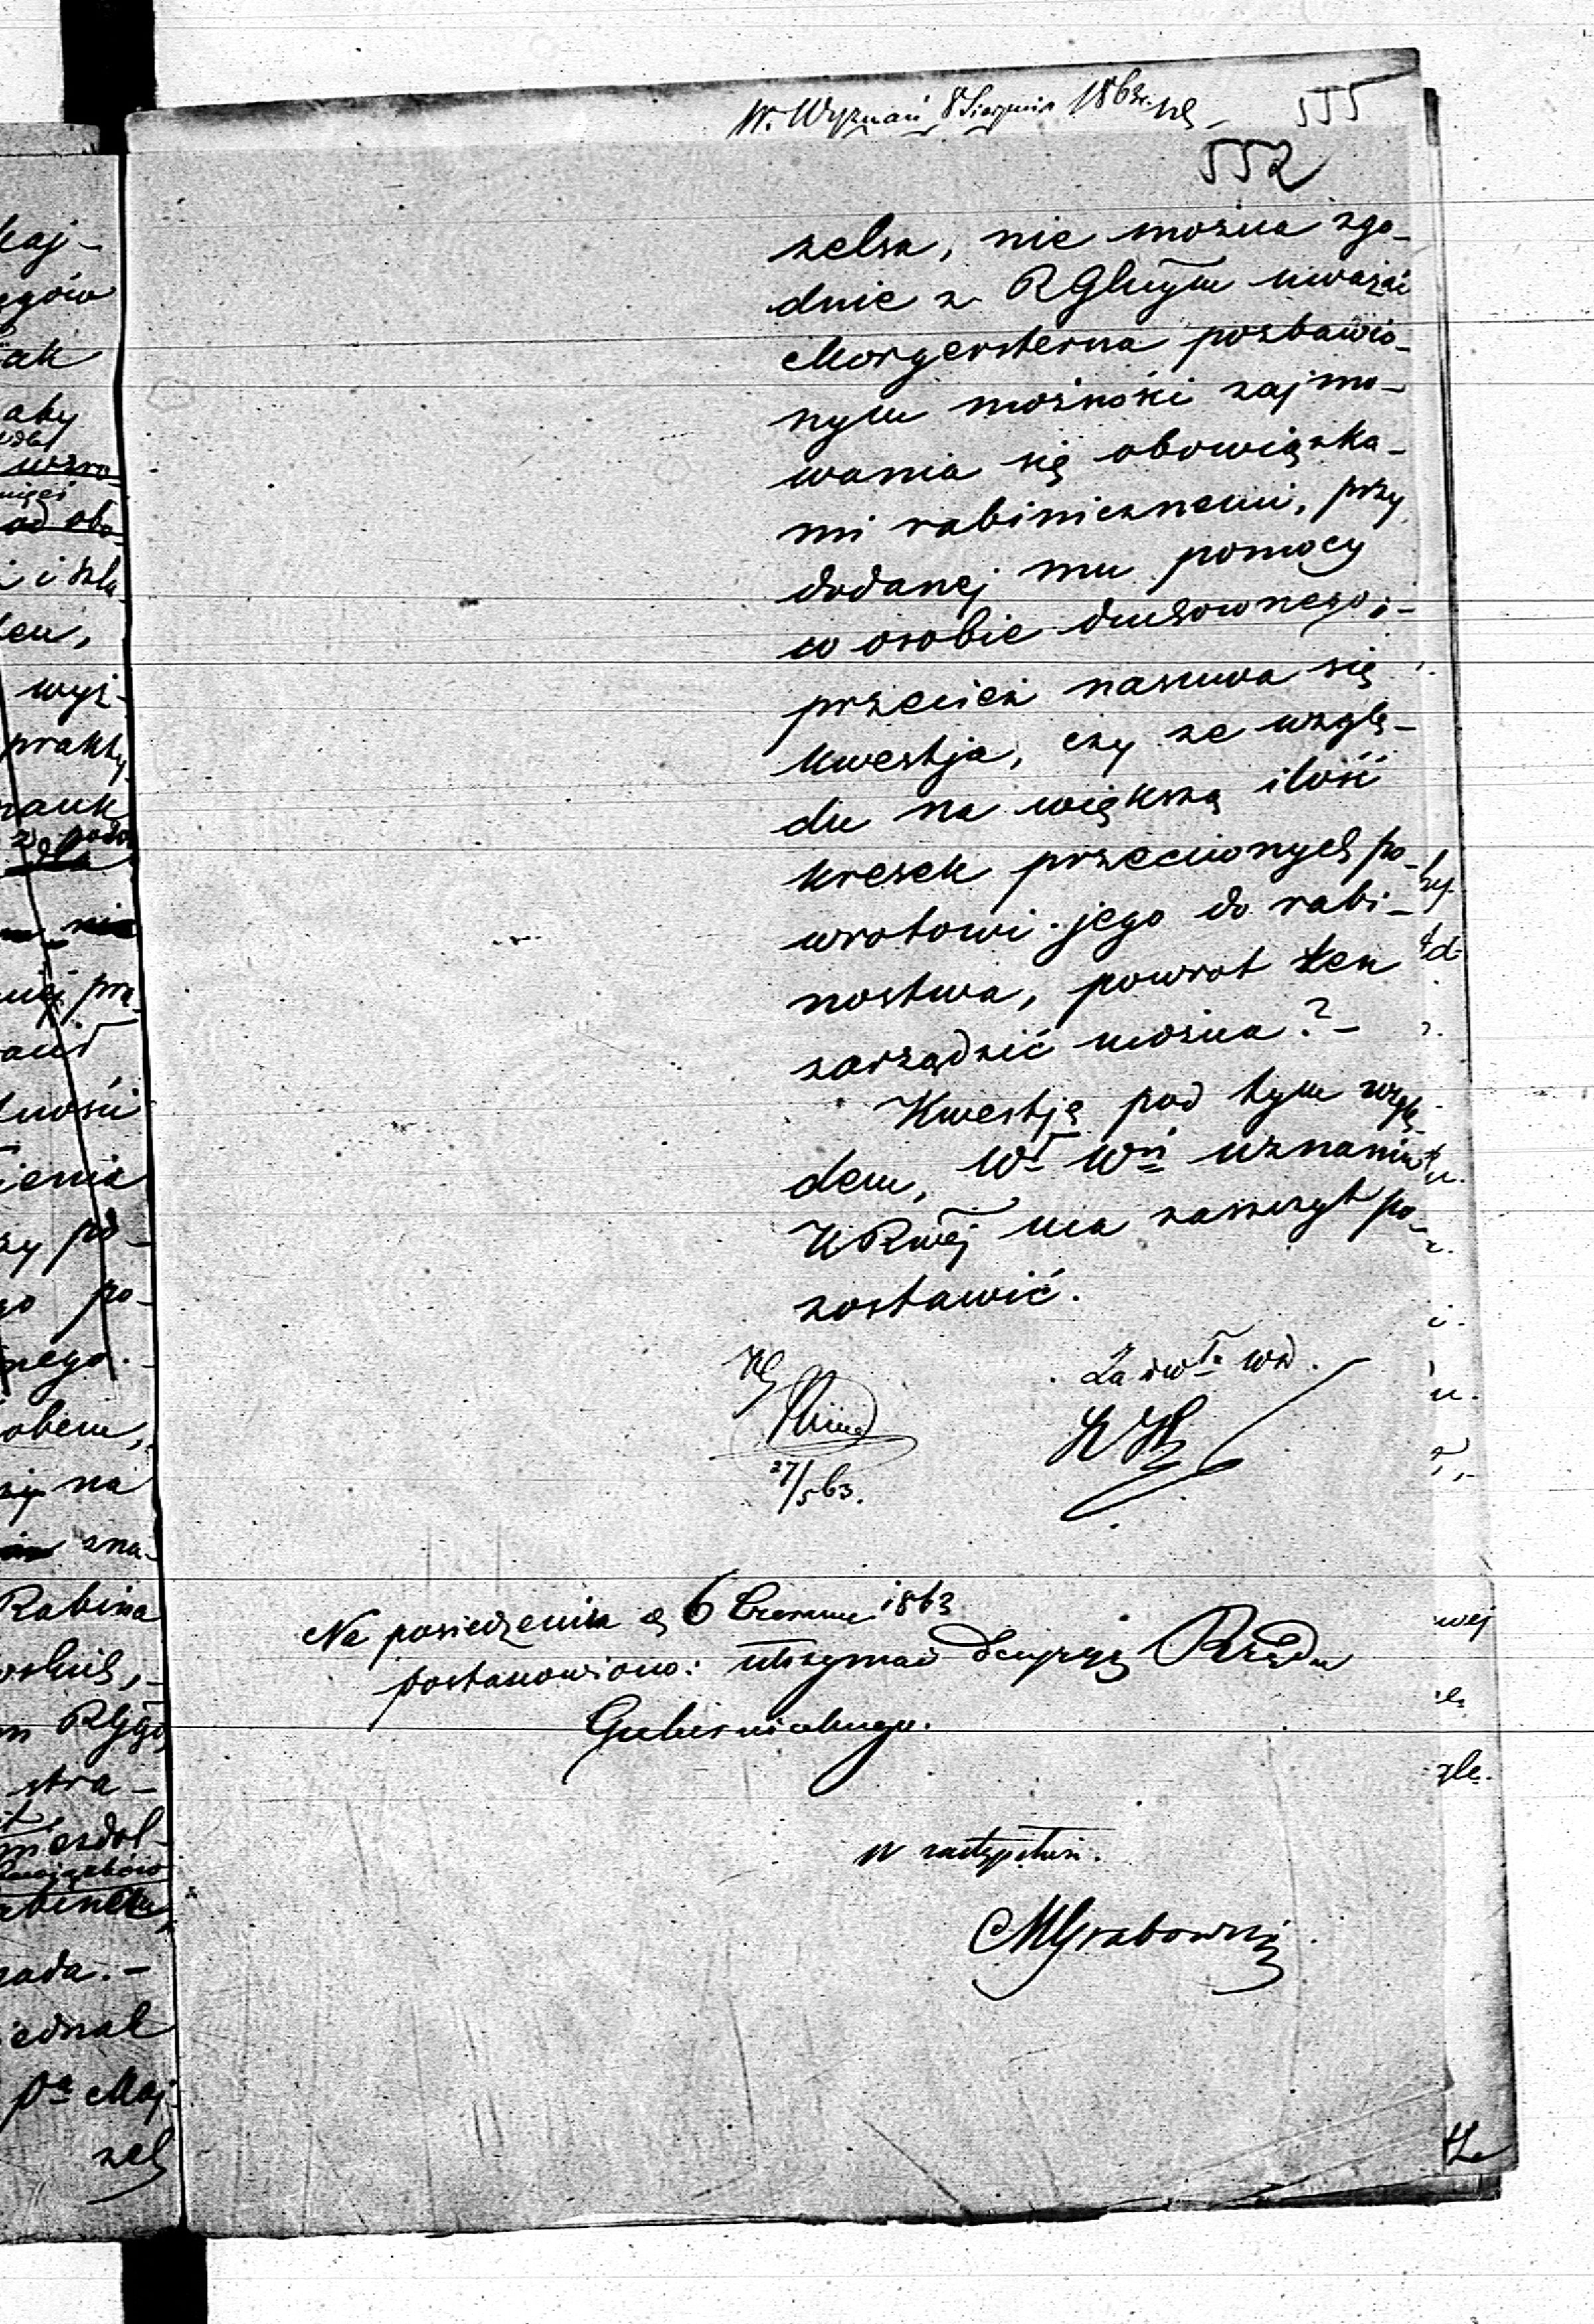 W. Wyznań 8 Sierpnia 1863r.
555
552
zelsa, nie można zgo-
dnie z RGlnym uważać
Morgensterna pozbawio-
nym możności zajmo-
wania się obowiązka-
mi rabinicznemi, przy
dodanej mu pomocy
w osobie duchownego;-
przecież nasuwa się
kwestja, czy ze wzglę-
du na większą ilość
kresek przeciwnych po-
wrotowi jego do rabi-
nostwa, powrot ten
zarządzić można?-
Kwestję pod tym wzglę-
dem, uznaniu
KRwej ma zaszczyt po-
zostawić.
27/5 63.
Na posiedzeniu d 6 Czerwca 1863
postanowiono: utrzymać decyzję Rządu
Gubernialnego.
w zastępstwie.
MGrabowski
kaj-
egów
jak
aby
od obo-
wyż-
prakty
nauk
nie
ienia
po-
nego.
na
zna-
Rabina
stra-
jednak
pa Maj-
zel